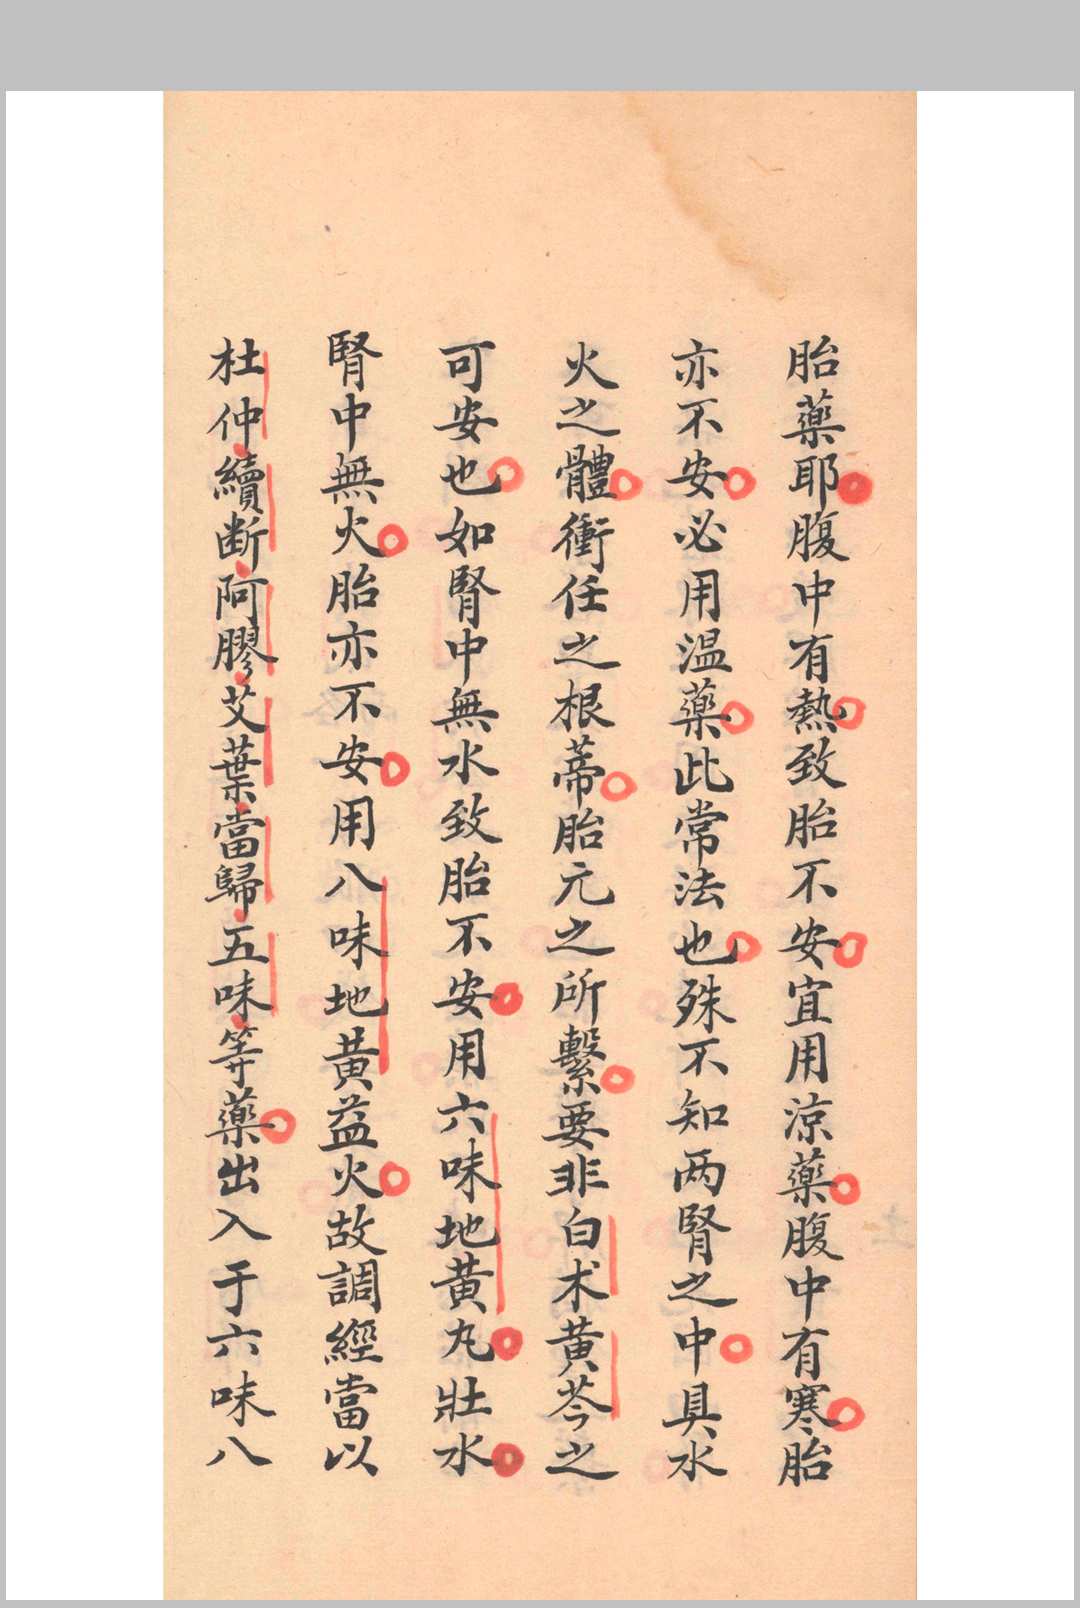 胎藥耶腹中有熱致胎不安宜用涼藥腹中有寒胎
亦不安必用温藥此常法也殊不知两腎之中具水
火之體衝任之根蒂胎元之所繫要非白术黄芩之
可安也如腎中無水致胎不安用六味地黄丸壯水
腎中無火胎亦不安用八味地黄益火故調經當以
杜仲續断阿膠艾葉當歸五味等藥出入于六味八